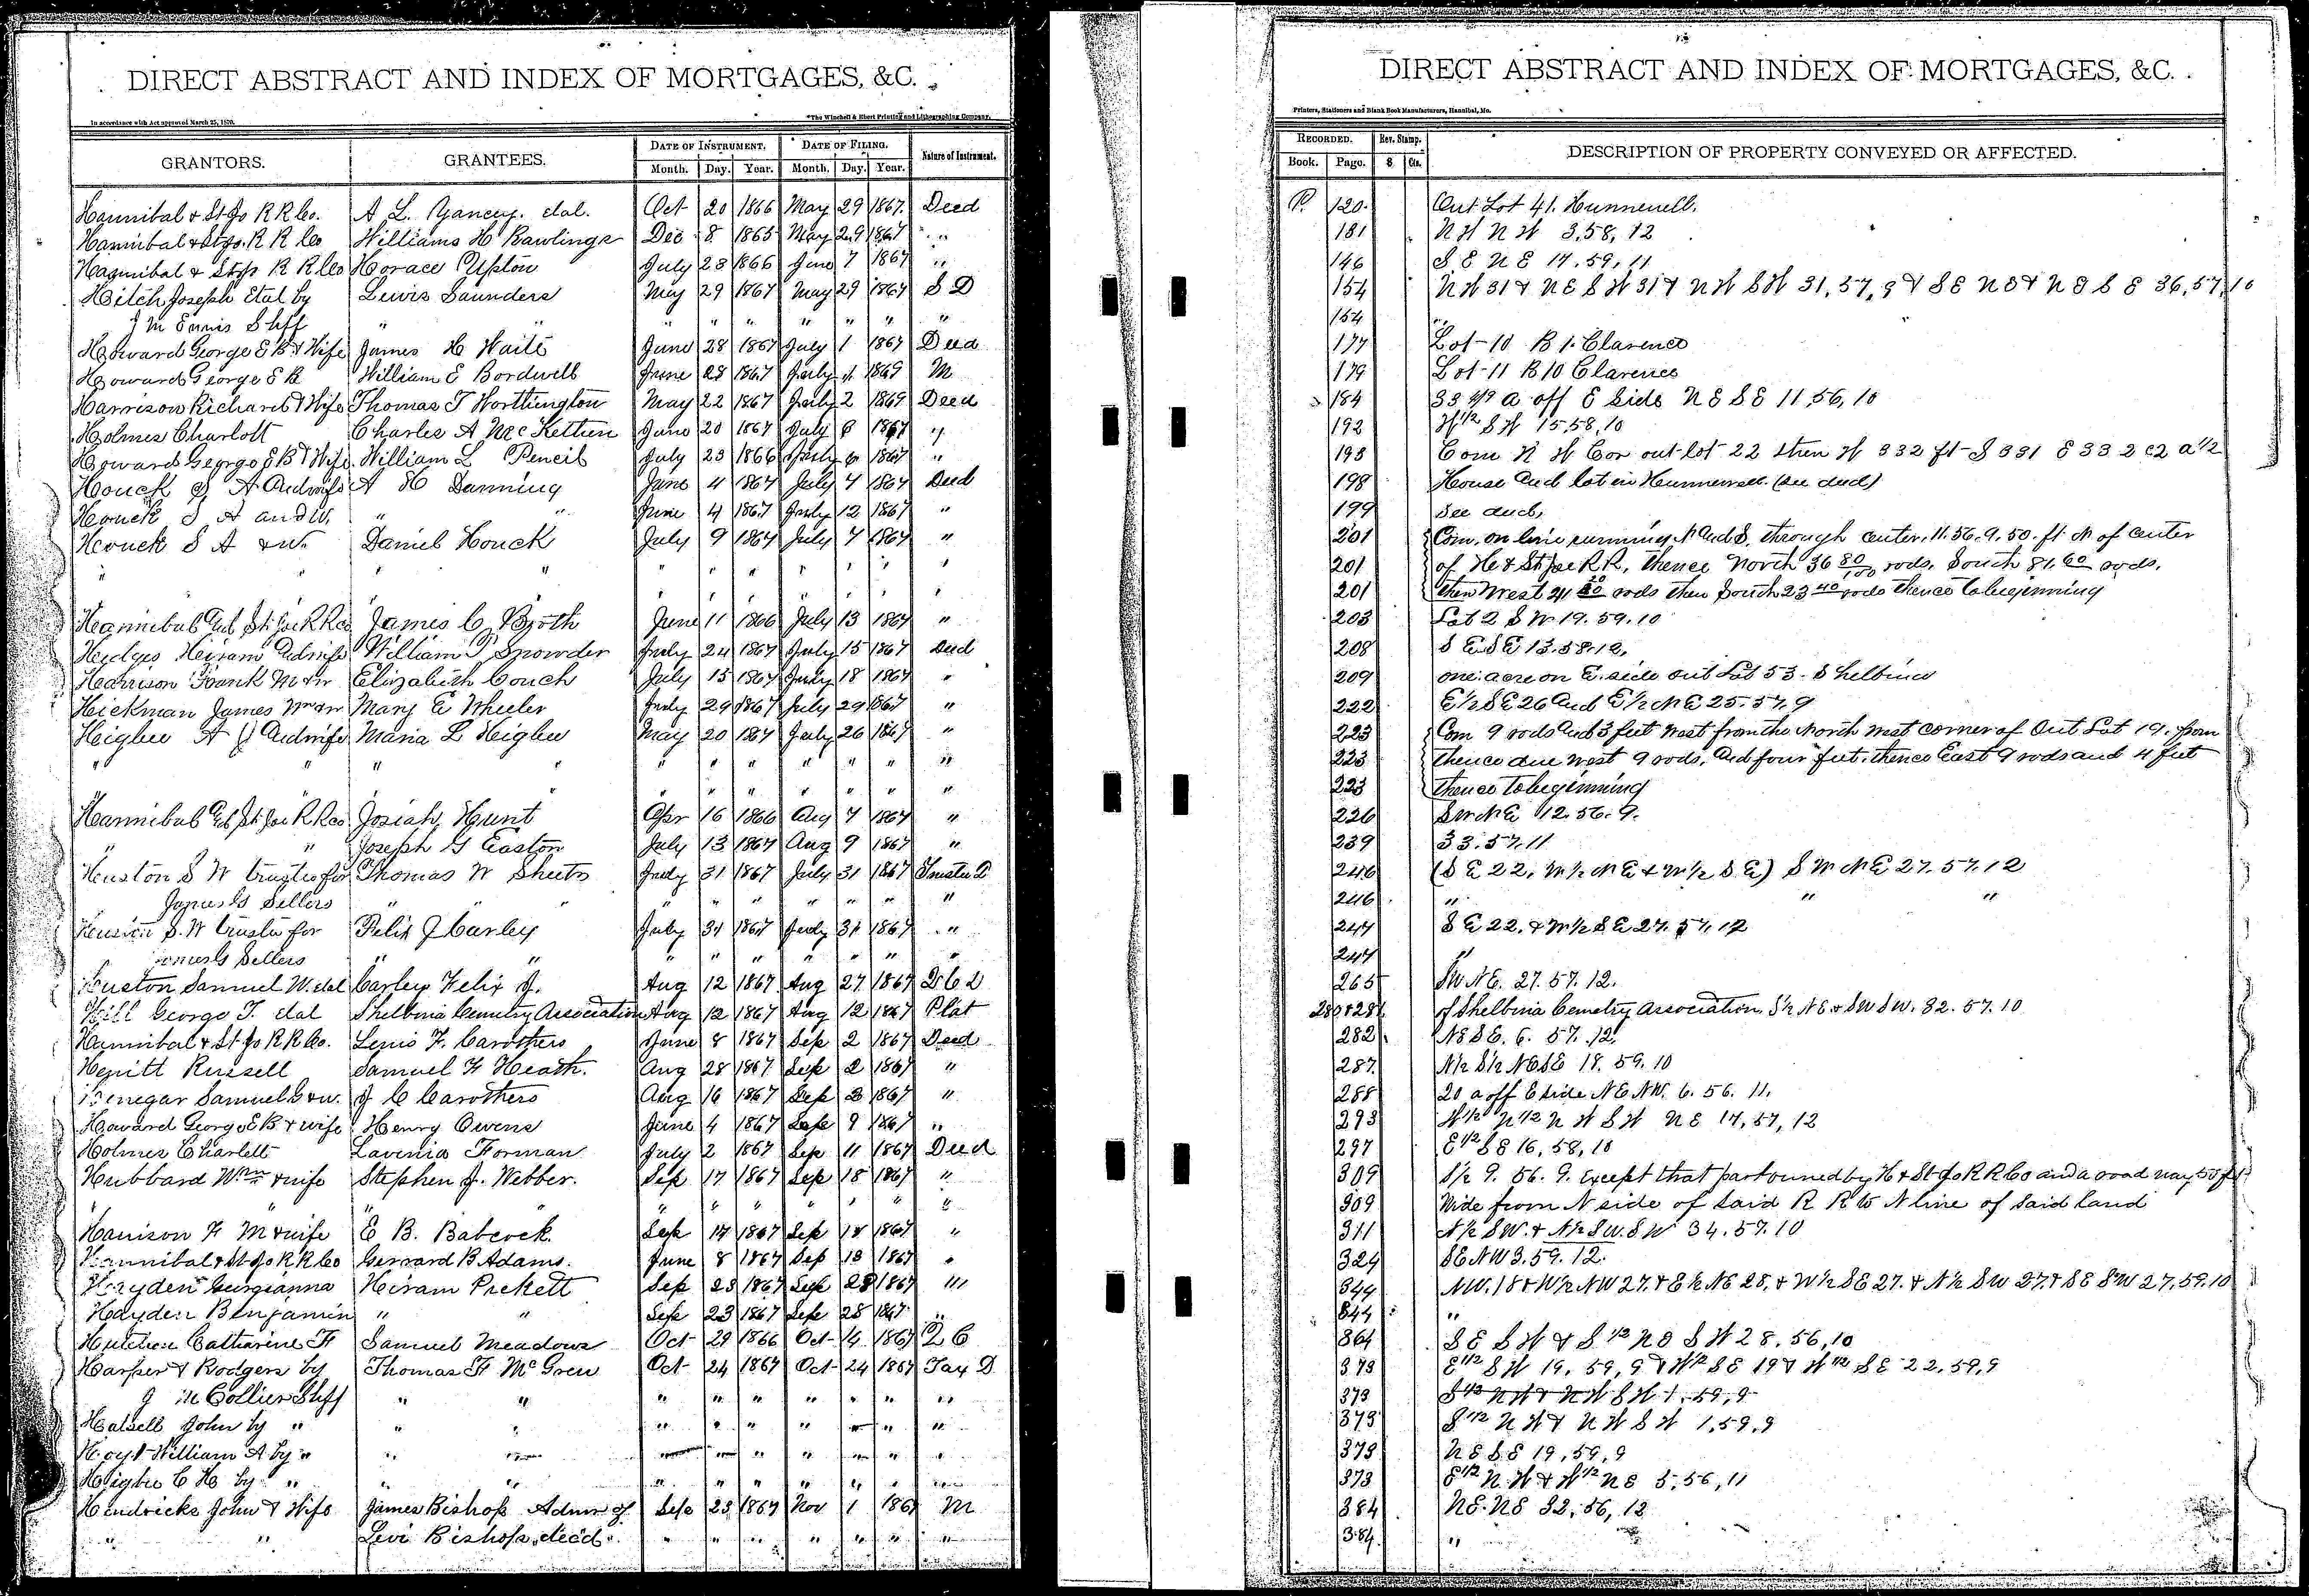 DIRECT ABSTRACT AND INDEX OF MORTGAGES, &C.
In accordance with Act approved March 25, 1870.
The Winchell & Ebert Printing and Lithographing Company.
GRANTORS. GRANTEES. DATE OF INSTRUMENT. DATE OF FILING. Nature of Instrument.
Month. Day. Year. Month. Day. Year.
Hannibal & St Jo R R Co. A L. Yancey. etal. Oct 20 1866 May 29 1867. Deed
Hannibal & St Jo. R R Co Williams H Rawlings Dec 8 1865 May 29 1867 "
Hannibal & St Jo R R Co Horace Upton July 28 1866 June 7 1867 "
Hitch Joseph Etal by Lewis Saunders May 29 1867 May 29 1867 S D
J M Ennis Shff " " " " " " " " "
Howard George E B & Wife James H Waite June 28 1867 July 1 1867 Deed
Howard George E B William E Bordwell June 28 1867 July 1 1869 M
Harrison Richard & Wife Thomas T Worthington May 22 1867 July 2 1869 Deed
Holmes Charlott Charles A McKethen June 20 1867 July 8 1867 "
Howard George E B & Wife William L Pencil July 23 1866 July 6 1867 "
Houck S A And wife A H Danning June 4 1867 July 7 1867 Deed
Houck S A and W. " " June 4 1867 July 12 1867 "
Houck S A & W. Daniel Houck July 9 1867 July 7 1867 "
" " " " " " " " "
" " " " " " "
Hannibal And St Joe R R Co James C Booth June 11 1866 July 13 1867 "
Hedges Heiram And wife William T Snowder July 24 1867 July 15 1867 Deed
Harrison Frank M & W Elizabeth Couch July 15 1867 July 18 1867 "
Hickman James Wm & W Mary E Wheeler July 29 1867 July 29 1867 "
Higbee A J And wife Maria L Higbee May 20 1867 July 26 1867 "
" " " " " " " " " " "
" " " " " " "
Hannibal And St Joe R R Co Josiah Hunt Apr 16 1866 Aug 7 1867 "
" " Joseph G Easton July 13 1867 Aug 9 1867 "
Huston S W trustee for Thomas W Sheets July 31 1867 July 31 1867 Trustee D
James G Sellers " " " " " " " " "
Huston S. W trustee for Felix J Carley July 31 1867 July 31 1867 "
James G Sellers " " " " " " " " "
Huston Samuel W. etal Carley Felix J. Aug 12 1867 Aug 27 1867 D C D
Hill George T. etal Shelbina Cemetry Association Aug 12 1867 Aug 12 1867 Plat
Hannibal & St Jo R R Co. Lewis F. Carothers June 8 1867 Sep 2 1867 Deed
Hewitt Russell Samuel F Heath. Aug 28 1867 Sep 2 1867 "
Henegar Samuel G & W. J C Carothers Aug 16 1867 Sep 3 1867 "
Howard George E B & wife Henry Owens June 4 1867 Sep 9 1867 "
Holmes Charlett Lavenia Forman July 2 1867 Sep 11 1867 Deed
Hubbard Wm & wife Stephen J. Webber. Sep 17 1867 Sep 18 1867 "
" " " " " " " " "
Harrison F M & wife E B. Babcock. Sep 17 1867 Sep 18 1867 "
Hannibal & St Jo R R Co Gerrard B Adams. June 8 1867 Sep 18 1867 "
Hayden Georgianna Heiram Pickett Sep 23 1867 Sep 28 1867 "
Hayden Benjamin " " Sep 23 1867 Sep 28 1867 "
Hutchen Catharine F Samuel Meadows Oct 29 1866 Oct 4 1867 Q C
Harper & Rodgers by Thomas F McGrew Oct 24 1867 Oct 24 1867 Tax D
J M Collier Shff " " " " " " " " "
Halsell John by " " " " " " " " " "
Hoyt William A by " " " " " " " " " "
Higbee C H by " " " " " " " " " "
Hendricks John & Wife James Bishop Admr of Sep 23 1867 Nov 1 1867 M
" " Levi Bishop dec'd. " " " " " " "
DIRECT ABSTRACT AND INDEX OF MORTGAGES, &C.
Printers, Stationers and Blank Book Manufacturers, Hannibal, Mo.
RECORDED. Rev. Stamp. DESCRIPTION OF PROPERTY CONVEYED OR AFFECTED.
Book. Page. $ Cts.
P. 120. Out Lot 41. Hunnewell.
181 N W N W 3, 58, 12
146 S E N E 17, 59, 11
154 N W 31 & N E S W 31 & N W S W 31, 57, 9 & S E N E & N E S E 36, 57, 10
154 "
177 Lot 10 B 1. Clarence
179 Lot 11 B 10 Clarence
184 a off E Side N E S E 11, 56, 10
192 W 1/2 S W 15, 58, 10
198 Com N W Cor out lot 22 then W 332 ft S 331 E 332
198 House And lot in Hunnewell. (see deed)
199 See deed,
201 Com. on line running N And S. through center. 11. 56. 9. 50. ft N of center
201 of H & St Joe R R, thence North 36 80/100 rods, South 81.60 rods,
201 then West 41 rods then South 23 40 rods thence to beginning
203 Lot 2 S W 19. 59. 10
208 S E S E 13. 58. 12,
209 one acre on E. side out Lot 53. Shelbina
222 E 1/2 S E 26 And E 1/2 N E 25. 57. 9
223 Com 9 rods And 3 feet West from the North West corner of Out Lot 19. from
223 thence due West 9 rods, And four feet, thence East 9 rods and 4 feet
223 thence to beginning
226 S W N E 12. 56. 9.
239 33. 57. 11
246 (S E 22, W 1/2 N E & W 1/2 S E) S W N E 27. 57. 12
246 " " "
247 S E 22. & W 1/2 S E 27. 57. 12
247 "
265 S W N E. 27. 57. 12.
280 & 281 of Shelbina Cemetry Association. S 1/2 N E & S W S W. 32. 57. 10
282 N E S E. 6. 57. 12.
287. N 1/2 S 1/2 N E S E 18. 59. 10
288 20 a off E side N E N W. 6. 56. 11.
293 W 1/2 N 1/2 N W S W N E 17, 57, 12
297 E 1/2 S E 16, 58, 10
309 S 1/2 9. 56. 9. Except that part owned by H & St Jo R R Co and a road way 50 ft
309 Wide from N side of said R R to N line of said land
311 N 1/2 S W. & N 1/2 S W. S W 34. 57. 10
324 S E N W 3. 59. 12.
344 N W. 18 & W 1/2 N W 27. & E 1/2 N E 28. & W 1/2 S E 27. & N 1/2 S W 27. & S E S W 27. 59. 10
344 "
364 S E S W & S 1/2 N E S W 28, 56, 10
373 E 1/2 S W 19, 59, 9 & W 1/2 S E 19 & W 1/2 S E 22, 59, 9
373 S 1/2 N W & N W S W 1, 59, 9
373 S 1/2 N W & N W S W 1, 59, 9
373 N E S E 19, 59, 9
373 E 1/2 N W & W 1/2 N E 5, 56, 11
384 N E N E 32, 56, 12
384. "